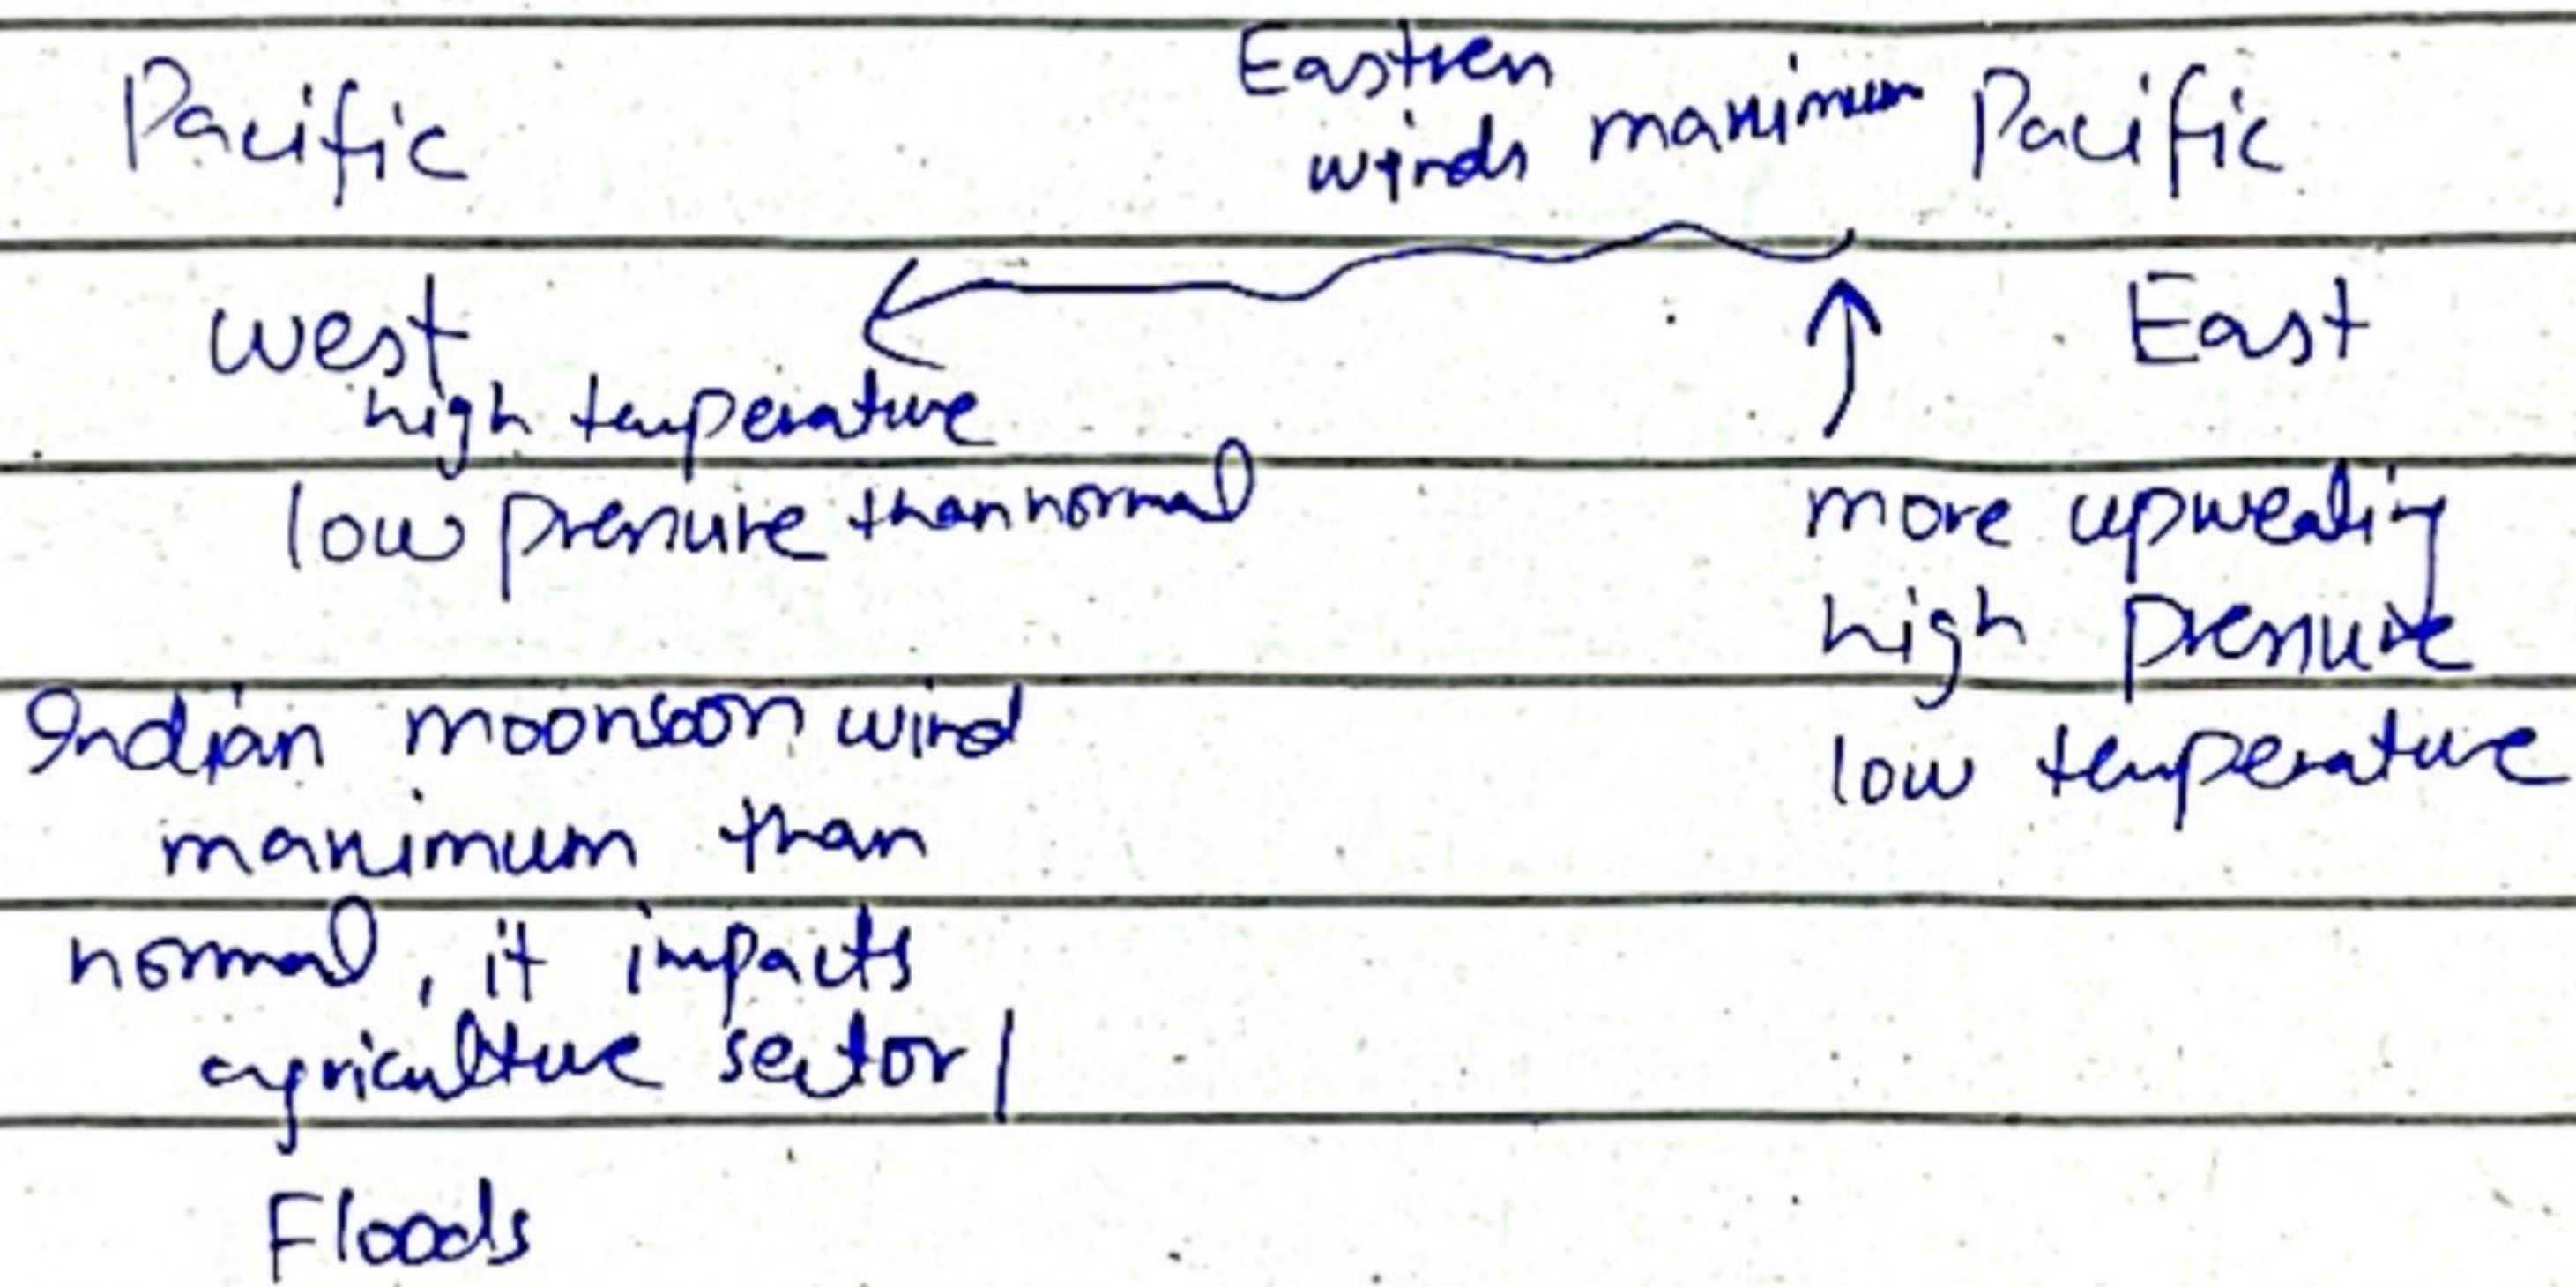 Pacific
Eastren
winds maximum
Pacific
west
East
high temperature
low pressure than normal
more upwealing
high pressure
low temperature
Indian moonsoon wind
maximum than
normal, it impacts
agriculture sector/
Floods